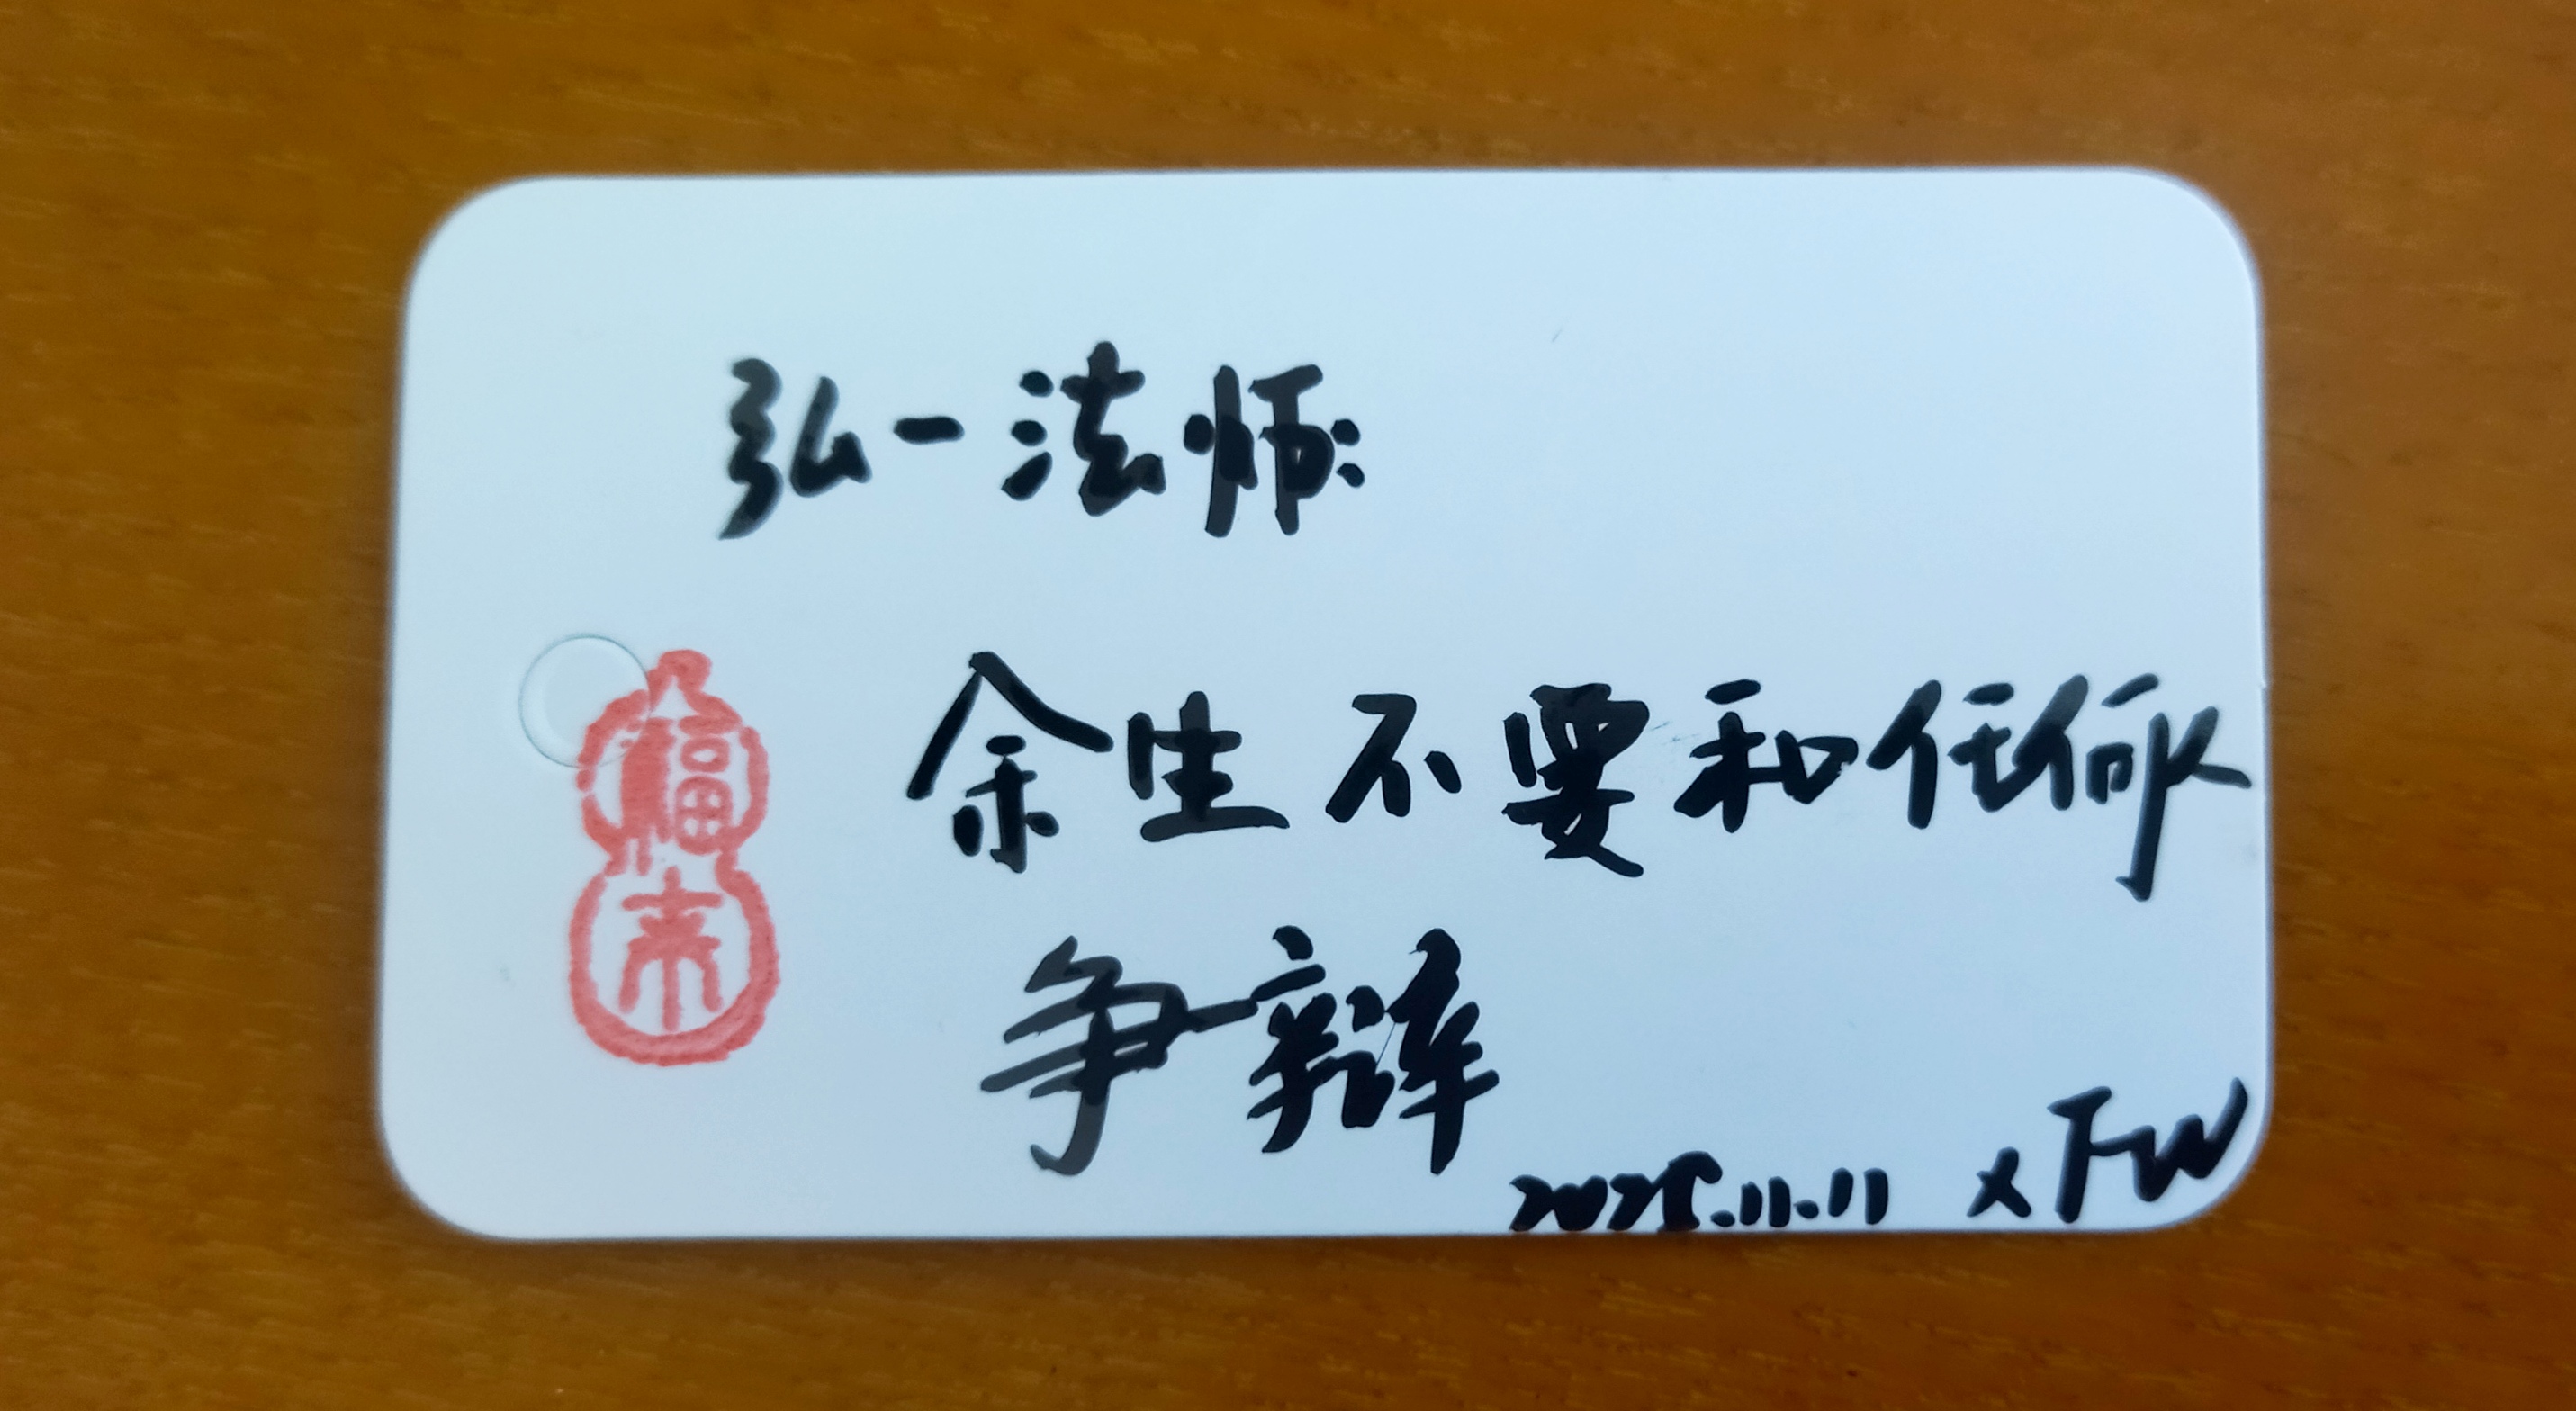 弘一法师:
福来
余生不要和任何人
争辩
2025.11.11 XFW